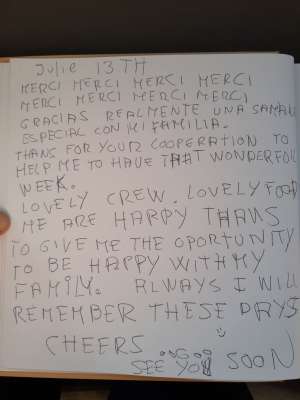 Julie 13 TH
MERCI MERCI MERCI MERCI
MERCI MERCI MERCI MERCI
GRACIAS REALMENTE UNA SAMANA
ESPECIAL CON MI FAMILIA.
THANS FOR YOUR COOPERATION TO
HELP ME TO HAVE THAT WONDERFOL
WEEK.
LOVELY CREW. LOVELY FOOD
ME ARE HAPPY THANS
TO GIVE ME THE OPORTUNITY
TO BE HAPPY WITH MY
FAMILY. ALWAYS I WILL
REMEMBER THESE DAYS
CHEERS
SEE YOU SOON